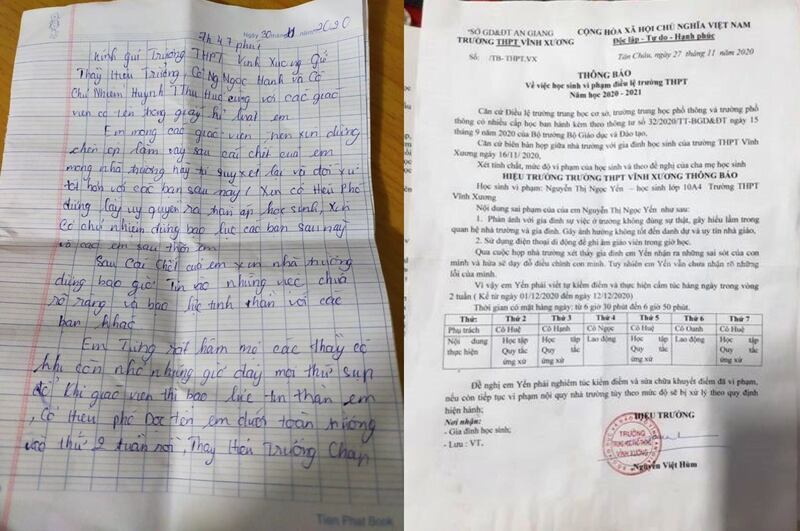 Ngày 30 tháng 11 năm 2020
7h 47 phút
Kính gửi Trường THPT Vĩnh Xương Gửi
Thầy Hiệu Trưởng, Cô Ngọc Hạnh và Cô
Chủ Nhiệm Huỳnh T Thu Huệ cùng với các giáo
viên có tên trong giấy kỉ luật em
Em mong các giáo viên trên xin đừng
chèn ép làm sau cái chết của em
mong nhà trường hãy suy xét lại và đối xử
tốt hơn với các bạn sau này! Xin cô Hiệu Phó
đừng lấy uy quyền ra đàn áp học sinh, xin
cô chủ nhiệm đừng bạo lực các bạn sau này
và các em sau thời em
Sau cái chết của em xin nhà trường
đừng bao giờ tin vào những việc chưa
rõ ràng và bạo lực tinh thần với các
bạn khác
Em Từng rất hâm mộ các thầy cô
khi còn nhỏ nhưng giờ đây mọi thứ sụp
đổ khi giáo viên thì bạo lực tin thần em
, Cô Hiệu phó Đọc tên em dưới toàn trường
vào thứ 2 tuần rồi, Thầy Hiệu Trưởng Chan
Tien Phat Book
SỞ GD&ĐT AN GIANG
TRƯỜNG THPT VĨNH XƯƠNG
Số: /TB-THPT.VX
CỘNG HÒA XÃ HỘI CHỦ NGHĨA VIỆT NAM
Độc lập - Tự do - Hạnh phúc
Tân Châu, ngày 27 tháng 11 năm 2020
THÔNG BÁO
Về việc học sinh vi phạm điều lệ trường THPT
Năm học 2020 - 2021
Căn cứ Điều lệ trường trung học cơ sở, trường trung học phổ thông và trường phổ
thông có nhiều cấp học ban hành kèm theo thông tư số 32/2020/TT-BGD&ĐT ngày 15
tháng 9 năm 2020 của Bộ trưởng Bộ Giáo dục và Đào tạo,
Căn cứ biên bản họp giữa nhà trường với gia đình học sinh của trường THPT Vĩnh
Xương ngày 16/11/ 2020,
Xét tính chất, mức độ vi phạm của học sinh và theo đề nghị của cha mẹ học sinh
HIỆU TRƯỞNG TRƯỜNG THPT VĨNH XƯƠNG THÔNG BÁO
Học sinh vi phạm: Nguyễn Thị Ngọc Yến – học sinh lớp 10A4 Trường THPT
Vĩnh Xương
Nội dung sai phạm của của em Nguyễn Thị Ngọc Yến như sau:
1. Phản ánh với gia đình sự việc ở trường không đúng sự thật, gây hiểu lầm trong
quan hệ nhà trường và gia đình. Gây ảnh hưởng không tốt đến danh dự và uy tín nhà giáo,
2. Sử dụng điện thoại di động để ghi âm giáo viên trong giờ học.
Qua cuộc họp nhà trường xét thấy gia đình em Yến nhận ra những sai sót của con
mình và hứa sẽ dạy dỗ điều chỉnh con mình. Tuy nhiên em Yến vẫn chưa nhận rõ những
lỗi của mình.
Vì vậy em Yến phải viết tự kiểm điểm và thực hiện cấm túc hàng ngày trong vòng
2 tuần ( Kể từ ngày 01/12/2020 đến ngày 12/12/2020)
Thời gian có mặt hàng ngày: từ 6 giờ 30 phút đến 6 giờ 50 phút.
Thứ: Thứ 2 Thứ 3 Thứ 4 Thứ 5 Thứ 6 Thứ 7
Phụ trách Cô Huệ Cô Hạnh Cô Ngọc Cô Huệ Cô Oanh Cô Huệ
Nội dung thực hiện Học tập Quy tắc ứng xử Học tập Quy tắc ứng xử Lao động Học tập Quy tắc ứng xử Lao động Học tập Quy tắc ứng xử
Đề nghị em Yến phải nghiêm túc kiểm điểm và sửa chữa khuyết điểm đã vi phạm,
nếu còn tiếp tục vi phạm nội quy nhà trường tùy theo mức độ sẽ bị xử lý theo quy định
hiện hành;
Nơi nhận:
- Gia đình học sinh;
- Lưu : VT.
HIỆU TRƯỞNG
TRƯỜNG
TRUNG HỌC PHỔ THÔNG
VĨNH XƯƠNG
Nguyễn Việt Hùm